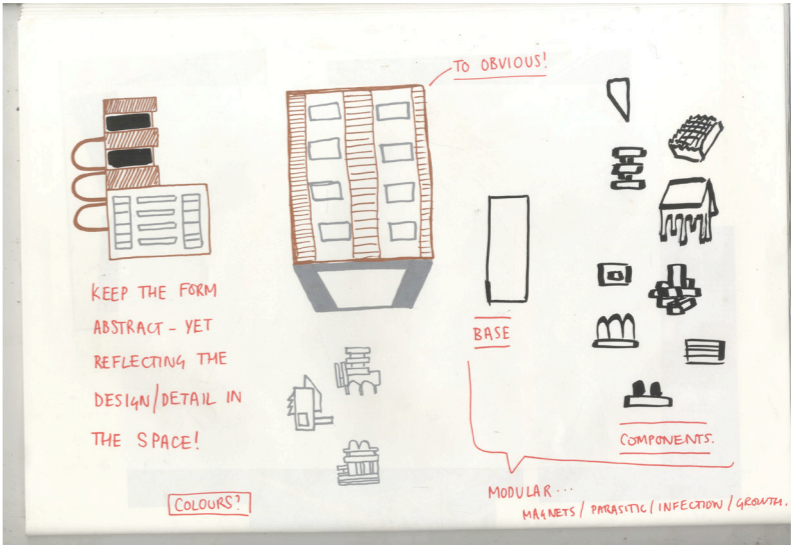 TO OBVIOUS!
KEEP THE FORM
ABSTRACT - YET
REFLECTING THE
DESIGN/DETAIL IN
THE SPACE!
COLOURS?
BASE
COMPONENTS.
MODULAR...
MAGNETS / PARASITIC / INFECTION / GROWTH.